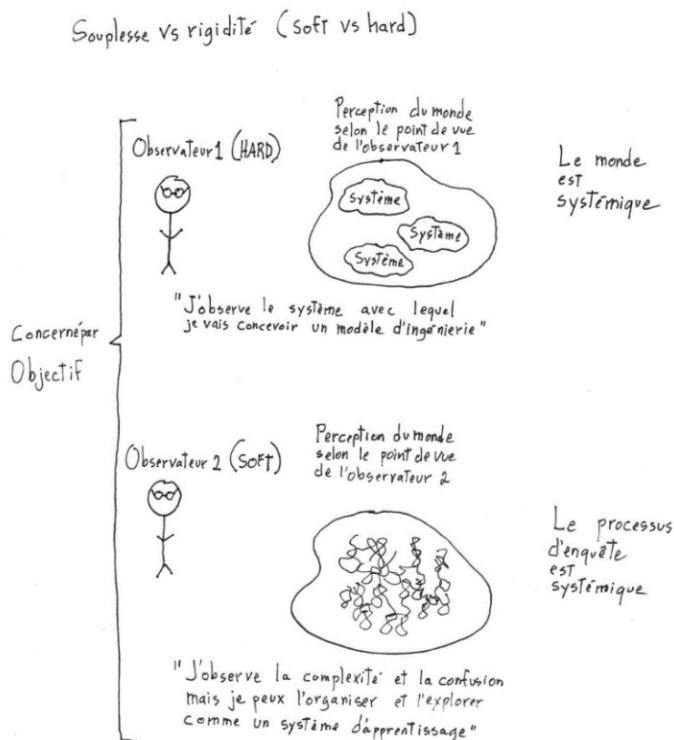 Souplesse vs rigidité (soft vs hard)
Observateur 1 (HARD)
Perception du monde
selon le point de vue
de l'observateur 1
Système
Système
Système
Le monde
est
systémique
"J'observe le système avec lequel
je vais concevoir un modèle d'ingénierie"
Concerné par
Objectif
Observateur 2 (SOFT)
Perception du monde
selon le point de vue
de l'observateur 2
Le processus
d'enquête
est
systémique
"J'observe la complexité et la confusion
mais je peux l'organiser et l'explorer
comme un système d'apprentissage"